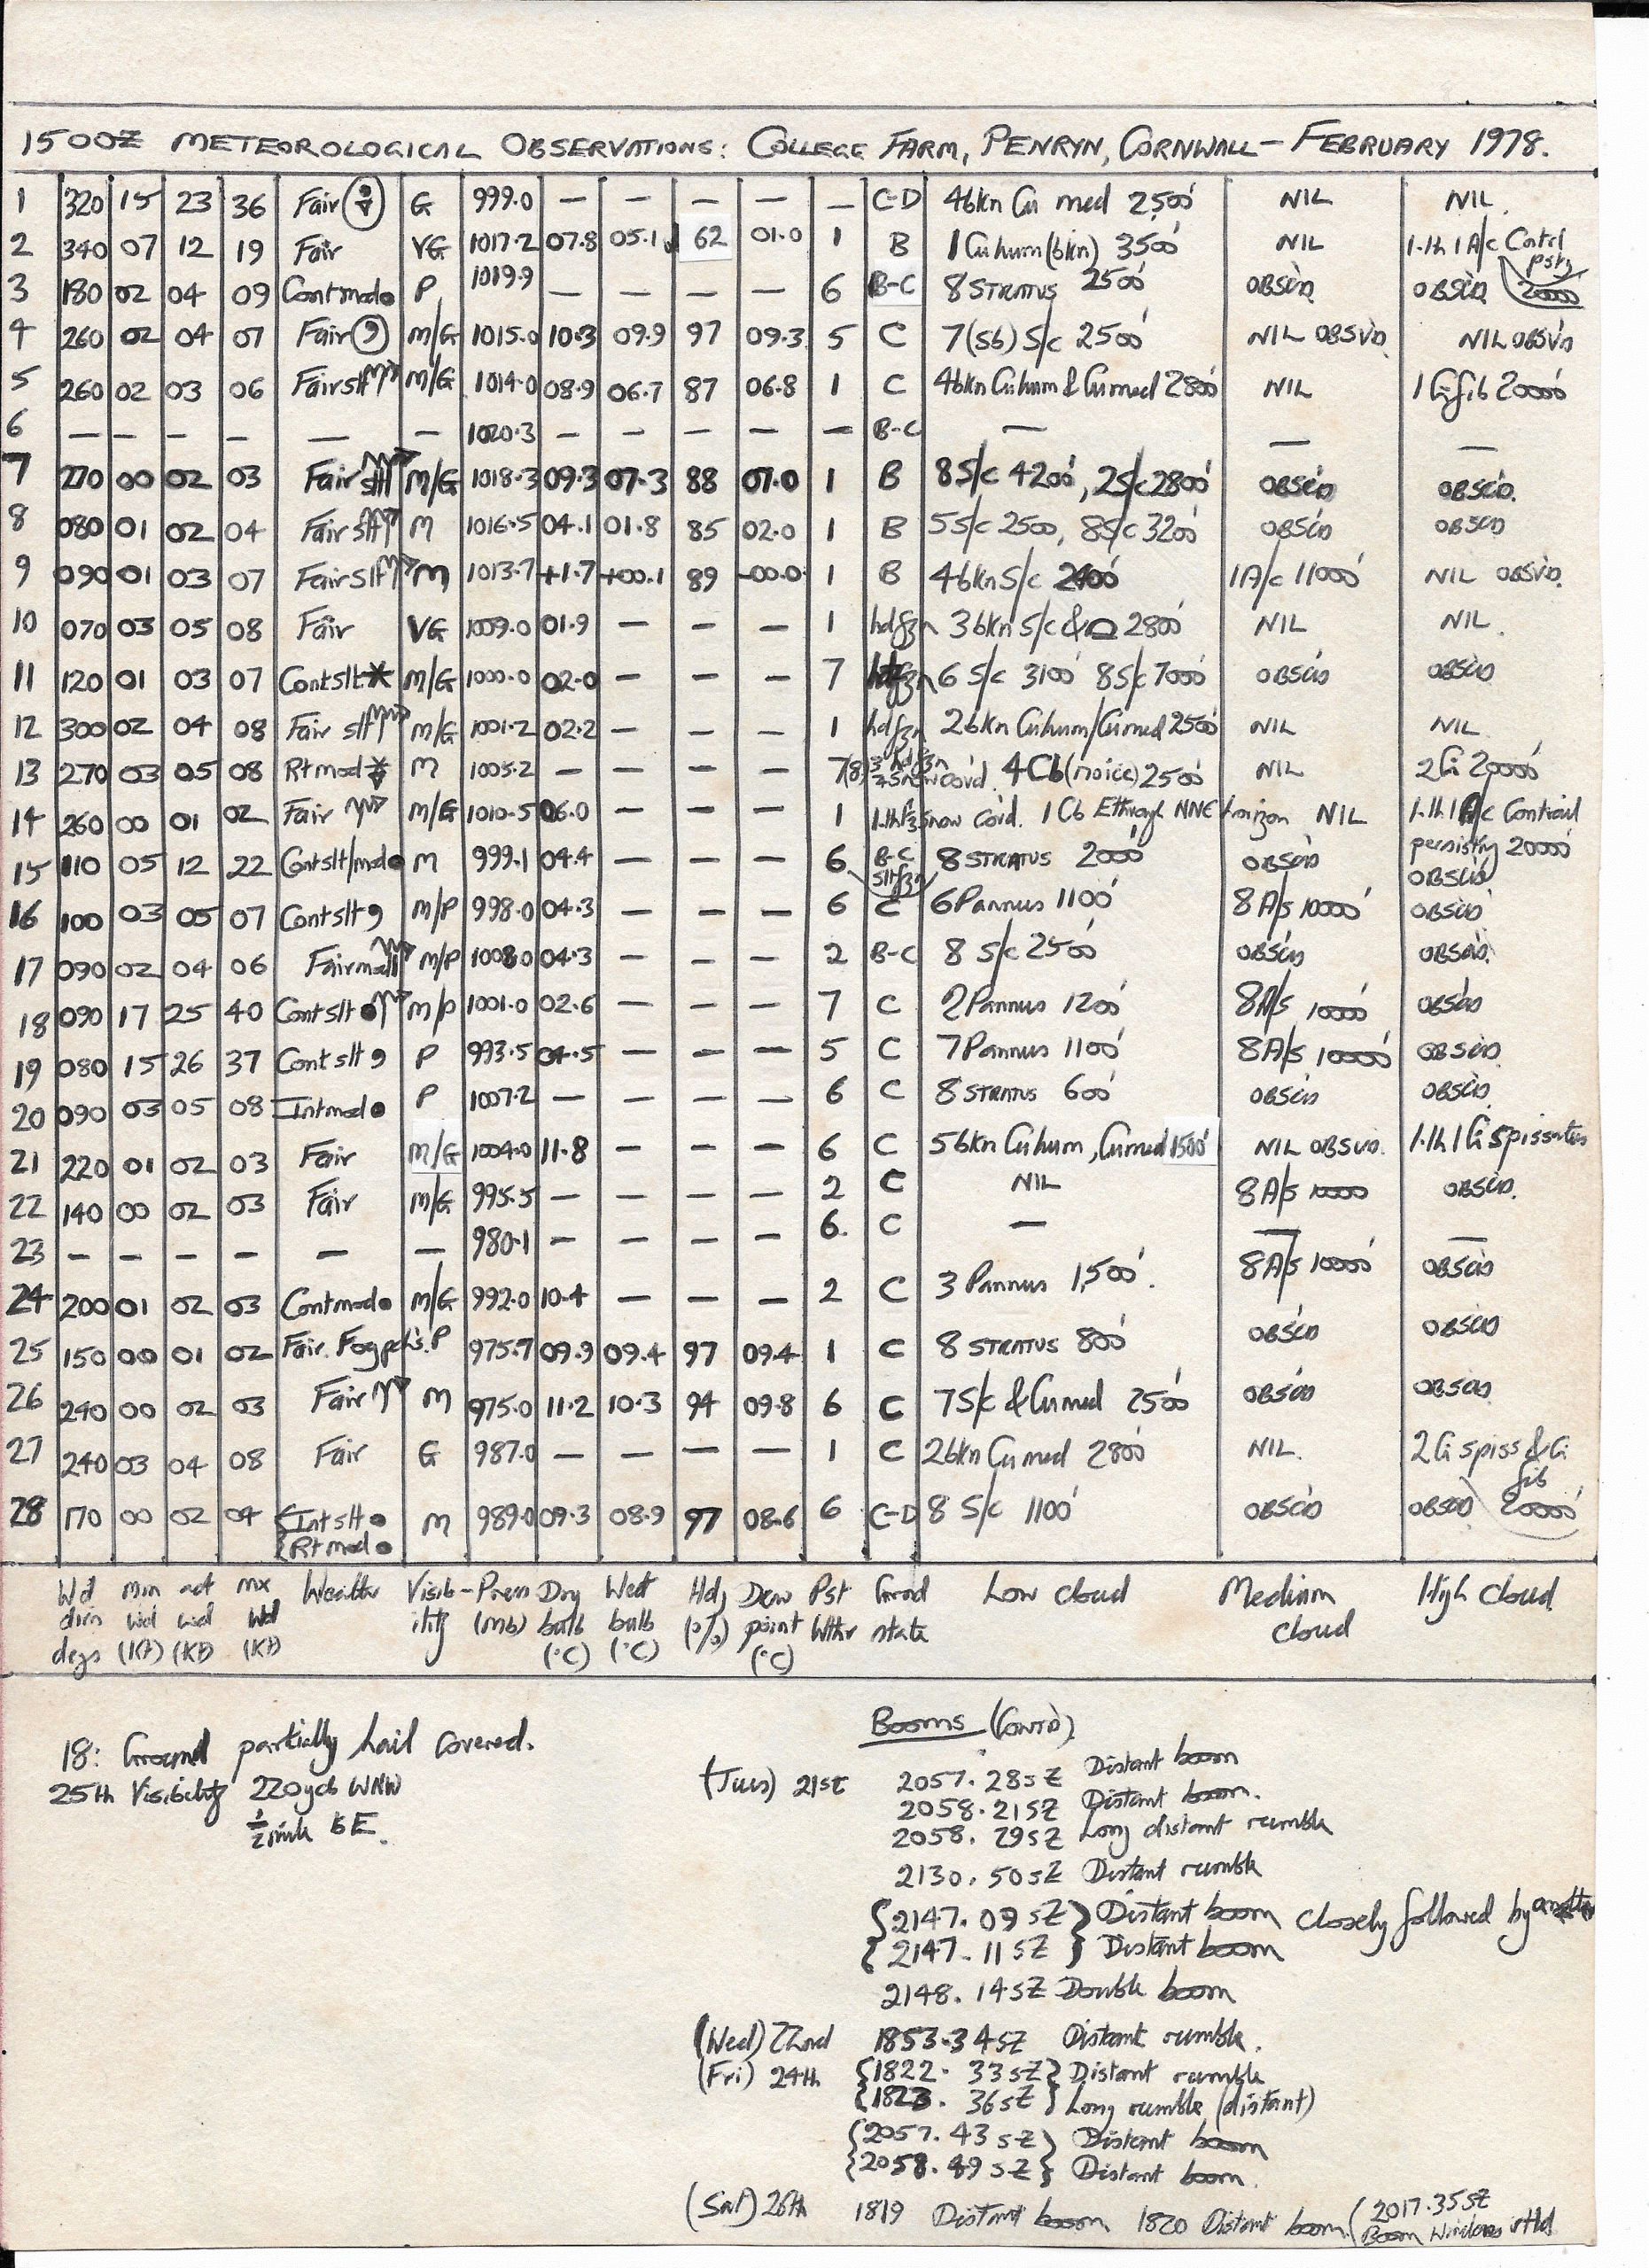 1500Z METEOROLOGICAL OBSERVATIONS: COLLEGE FARM, PENRYN, CORNWALL - FEBRUARY 1978.
1 320 15 23 36 Fair G 999.0 — — — — — C-D 4bkn Cu med 2500' NIL NIL.
2 340 07 12 19 Fair VG 1017.2 07.8 05.1 62 01.0 1 B 1 Cu hum (bkn) 3500' NIL 1.th 1 A/c Contrl pstg 20000
3 180 02 04 09 Contmod● P 1019.9 — — — — 6 B-C 8 STRATUS 2500' OBSCD OBSCD
4 260 02 04 07 Fair(9) M/G 1015.0 10.3 09.9 97 09.3 5 C 7(sb) S/c 2500' NIL OBSVD NIL OBSVD
5 260 02 03 06 Fair slt M/G 1014.0 08.9 06.7 87 06.8 1 C 4bkn Cuhum & Cumed 2800' NIL 1 Ci fib 20000'
6 — — — — — — 1020.3 — — — — — B-C — — —
7 270 00 02 03 Fair slt M/G 1018.3 09.3 07.3 88 07.0 1 B 8S/c 4200', 2S/c 2800' OBSCD OBSCD.
8 080 01 02 04 Fair slt M 1016.5 04.1 01.8 85 02.0 1 B 5S/c 2500, 8S/c 3200' OBSCD OBSCD
9 090 01 03 07 Fair slt M 1013.7 +1.7 +00.1 89 -00.0 1 B 4bkn S/c 2400' 1A/c 11000' NIL OBSVD.
10 070 03 05 08 Fair VG 1009.0 01.9 — — — 1 hdfzn 3bkn S/c & 2800' NIL NIL.
11 120 01 03 07 Contslt* M/G 1000.0 02.0 — — — 7 hdfzn 6 S/c 3100' 8S/c 7000' OBSCD OBSCD
12 300 02 04 08 Fair slt M/G 1001.2 02.2 — — — 1 hdfzn 2bkn Cuhum/Cumed 2500' NIL NIL.
13 270 03 05 08 Rt mod M 1005.2 — — — — 7(8) snow cov'd. 4Cb (noice) 2500' NIL 2 Ci 20000'
14 260 00 01 02 Fair M/G 1010.5 06.0 — — — 1 snow Co'd. 1 Cb E through NNE horizon NIL 1.th 1 A/c Contrail persistg 20000'
15 110 05 12 22 Cont slt/mod● M 999.1 04.4 — — — 6 B-C slt fzn 8 STRATUS 2000' OBSCD OBSCD
16 100 03 05 07 Cont slt 9 M/P 998.0 04.3 — — — 6 C 6 Pannus 1100' 8 A/s 10000' OBSCD
17 090 02 04 06 Fair M/P 1008.0 04.3 — — — 2 B-C 8 S/c 2500' OBSCD OBSCD.
18 090 17 25 40 Cont slt ● M/P 1001.0 02.6 — — — 7 C 2 Pannus 1200' 8A/s 10000' OBSCD
19 080 15 26 37 Cont slt 9 P 993.5 04.5 — — — 5 C 7 Pannus 1100' 8A/s 10000' OBSCD.
20 090 03 05 08 Intmod● P 1007.2 — — — — 6 C 8 STRATUS 600' OBSCD OBSCD.
21 220 01 02 03 Fair M/G 1004.0 11.8 — — — 6 C 5bkn Cuhum, Cumed 1500' NIL OBSVD. 1.th 1 Ci spissatus
22 140 00 02 03 Fair M/G 995.5 — — — — 2 C NIL 8A/s 10000' OBSCD.
23 — — — — — — 980.1 — — — — 6. C — — —
24 200 01 02 03 Contmod● M/G 992.0 10.4 — — — 2 C 3 Pannus 1,500'. 8A/s 10000' OBSCD
25 150 00 01 02 Fair. Fog pchs. P 975.7 09.9 09.4 97 09.4 1 C 8 STRATUS 800' OBSCD OBSCD
26 240 00 02 03 Fair M 975.0 11.2 10.3 94 09.8 6 C 7S/c & Cumed 2500' OBSCD OBSCD.
27 240 03 04 08 Fair G 987.0 — — — — 1 C 2bkn Cu med 2800' NIL. 2 Ci spiss & Ci fib 20000'
28 170 00 02 04 {Int slt ● M 989.0 09.3 08.9 97 08.6 6 C-D 8 S/c 1100' OBSCD OBSCD
{Rt mod ●
Wd Min act mx Weather Visib- Press Dry Wet Hdy Dew Pst Grnd Low cloud Medium High cloud
dirn wd wd wd ility (mb) bulb bulb (%) point Wthr state cloud
degs (KT) (KT) (KT) (°C) (°C) (°C)
18: Ground partially hail covered.
25th Visibility 220yds WNW
½ mile to E.
Booms (CONTD)
(Tues) 21st 2057.28sZ Distant boom
2058.21sZ Distant boom.
2058.29sZ Long distant rumble
2130.50sZ Distant rumble
{2147.09sZ} Distant boom closely followed by another
{2147.11sZ} Distant boom
2148.14sZ Double boom
(Wed) 22nd 1853.34sZ Distant rumble.
(Fri) 24th {1822.33sZ} Distant rumble
{1823.36sZ} Long rumble (distant)
{2057.43sZ} Distant boom
{2058.49sZ} Distant boom.
(Sat) 1819 Distant boom 1820 Distant boom (2017.35sZ
Boom Windows rttld